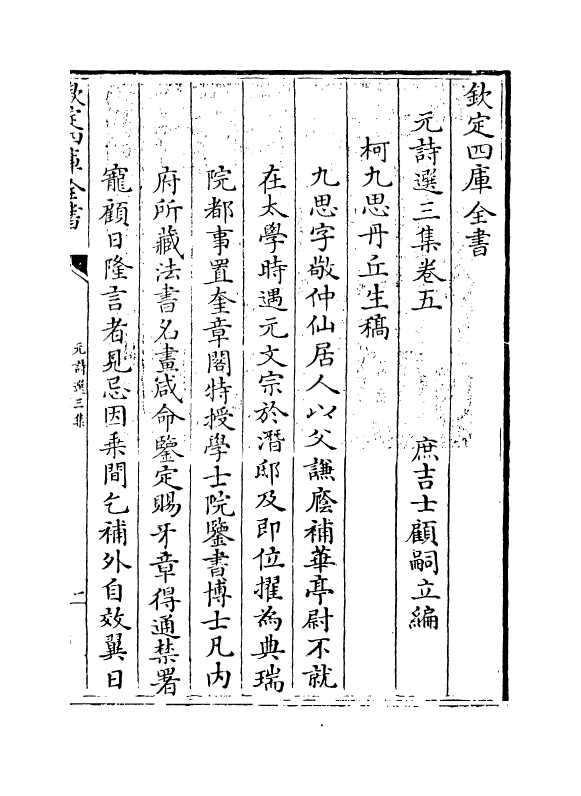 欽定四庫全書
元詩選三集卷五
庶吉士顧嗣立編
柯九思丹丘生稿
九思字敬仲仙居人以父謙廕補華亭尉不就
在太學時遇元文宗於潛邸及即位擢為典瑞
院都事置奎章閣特授學士院鑒書博士凡内
府所藏法書名畫咸命鑒定賜牙章得通禁署
寵顧日隆言者見忌因乘間乞補外自效翼日
欽定四庫全書
元詩選三集